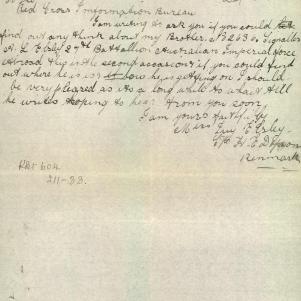 Red Cross Information Bureau
I am writing to ask you if you could
find out any think about my Brother. No 2630. Signaller
A. L. Exley 27th Battallion Australian Imperial Force
Abroad this is the second occasion if you could find
out where he is or how he is getting on I should
be very pleased as its a long while to wait till
he writes hoping to hear from you soon,
I am yours faithfully
Miss Exley
Renmark